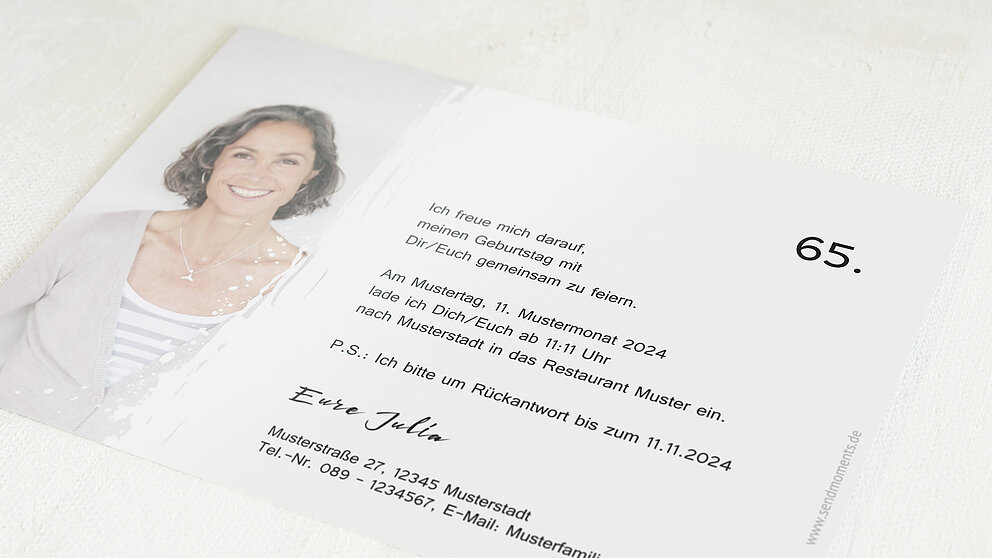 65.
Ich freue mich darauf,
meinen Geburtstag mit
Dir/Euch gemeinsam zu feiern.
Am Mustertag, 11. Mustermonat 2024
lade ich Dich/Euch ab 11:11 Uhr
nach Musterstadt in das Restaurant Muster ein.
P.S.: Ich bitte um Rückantwort bis zum 11.11.2024
Eure Julia
Musterstraße 27, 12345 Musterstadt
Tel.-Nr. 089 - 1234567, E-Mail: Musterfamili
www.sendmoments.de